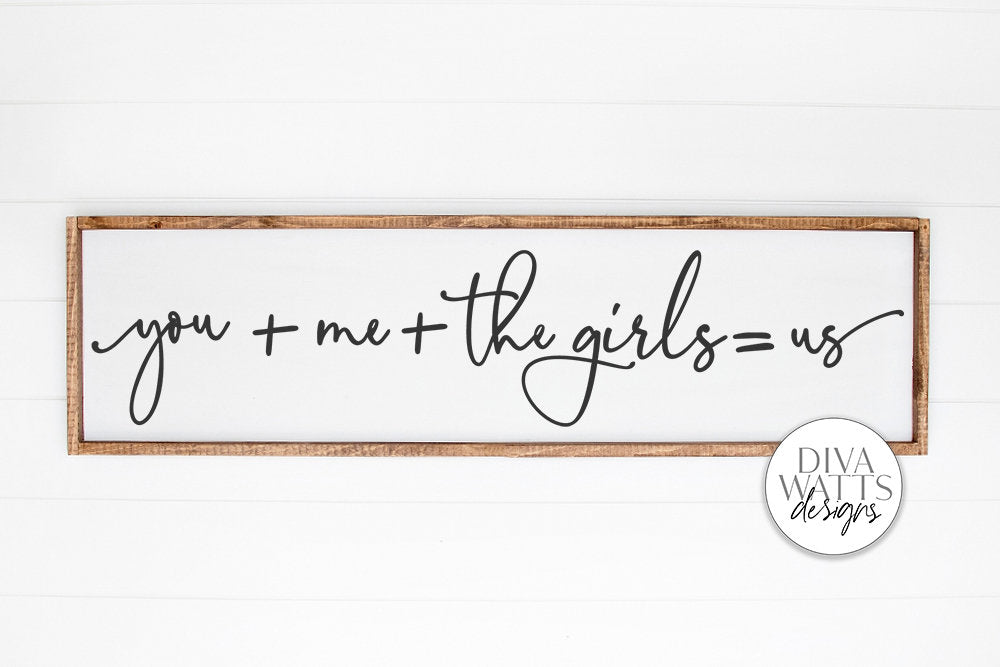 you + me + the girls = us
DIVA
WATTS
designs